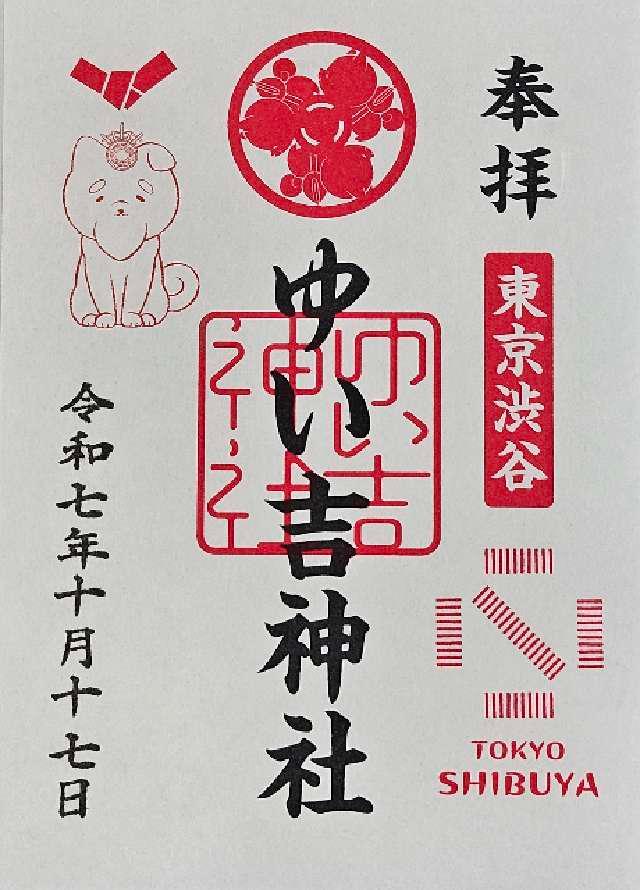 奉拝
東京渋谷
TOKYO
SHIBUYA
ゆい吉神社
令和七年十月十七日